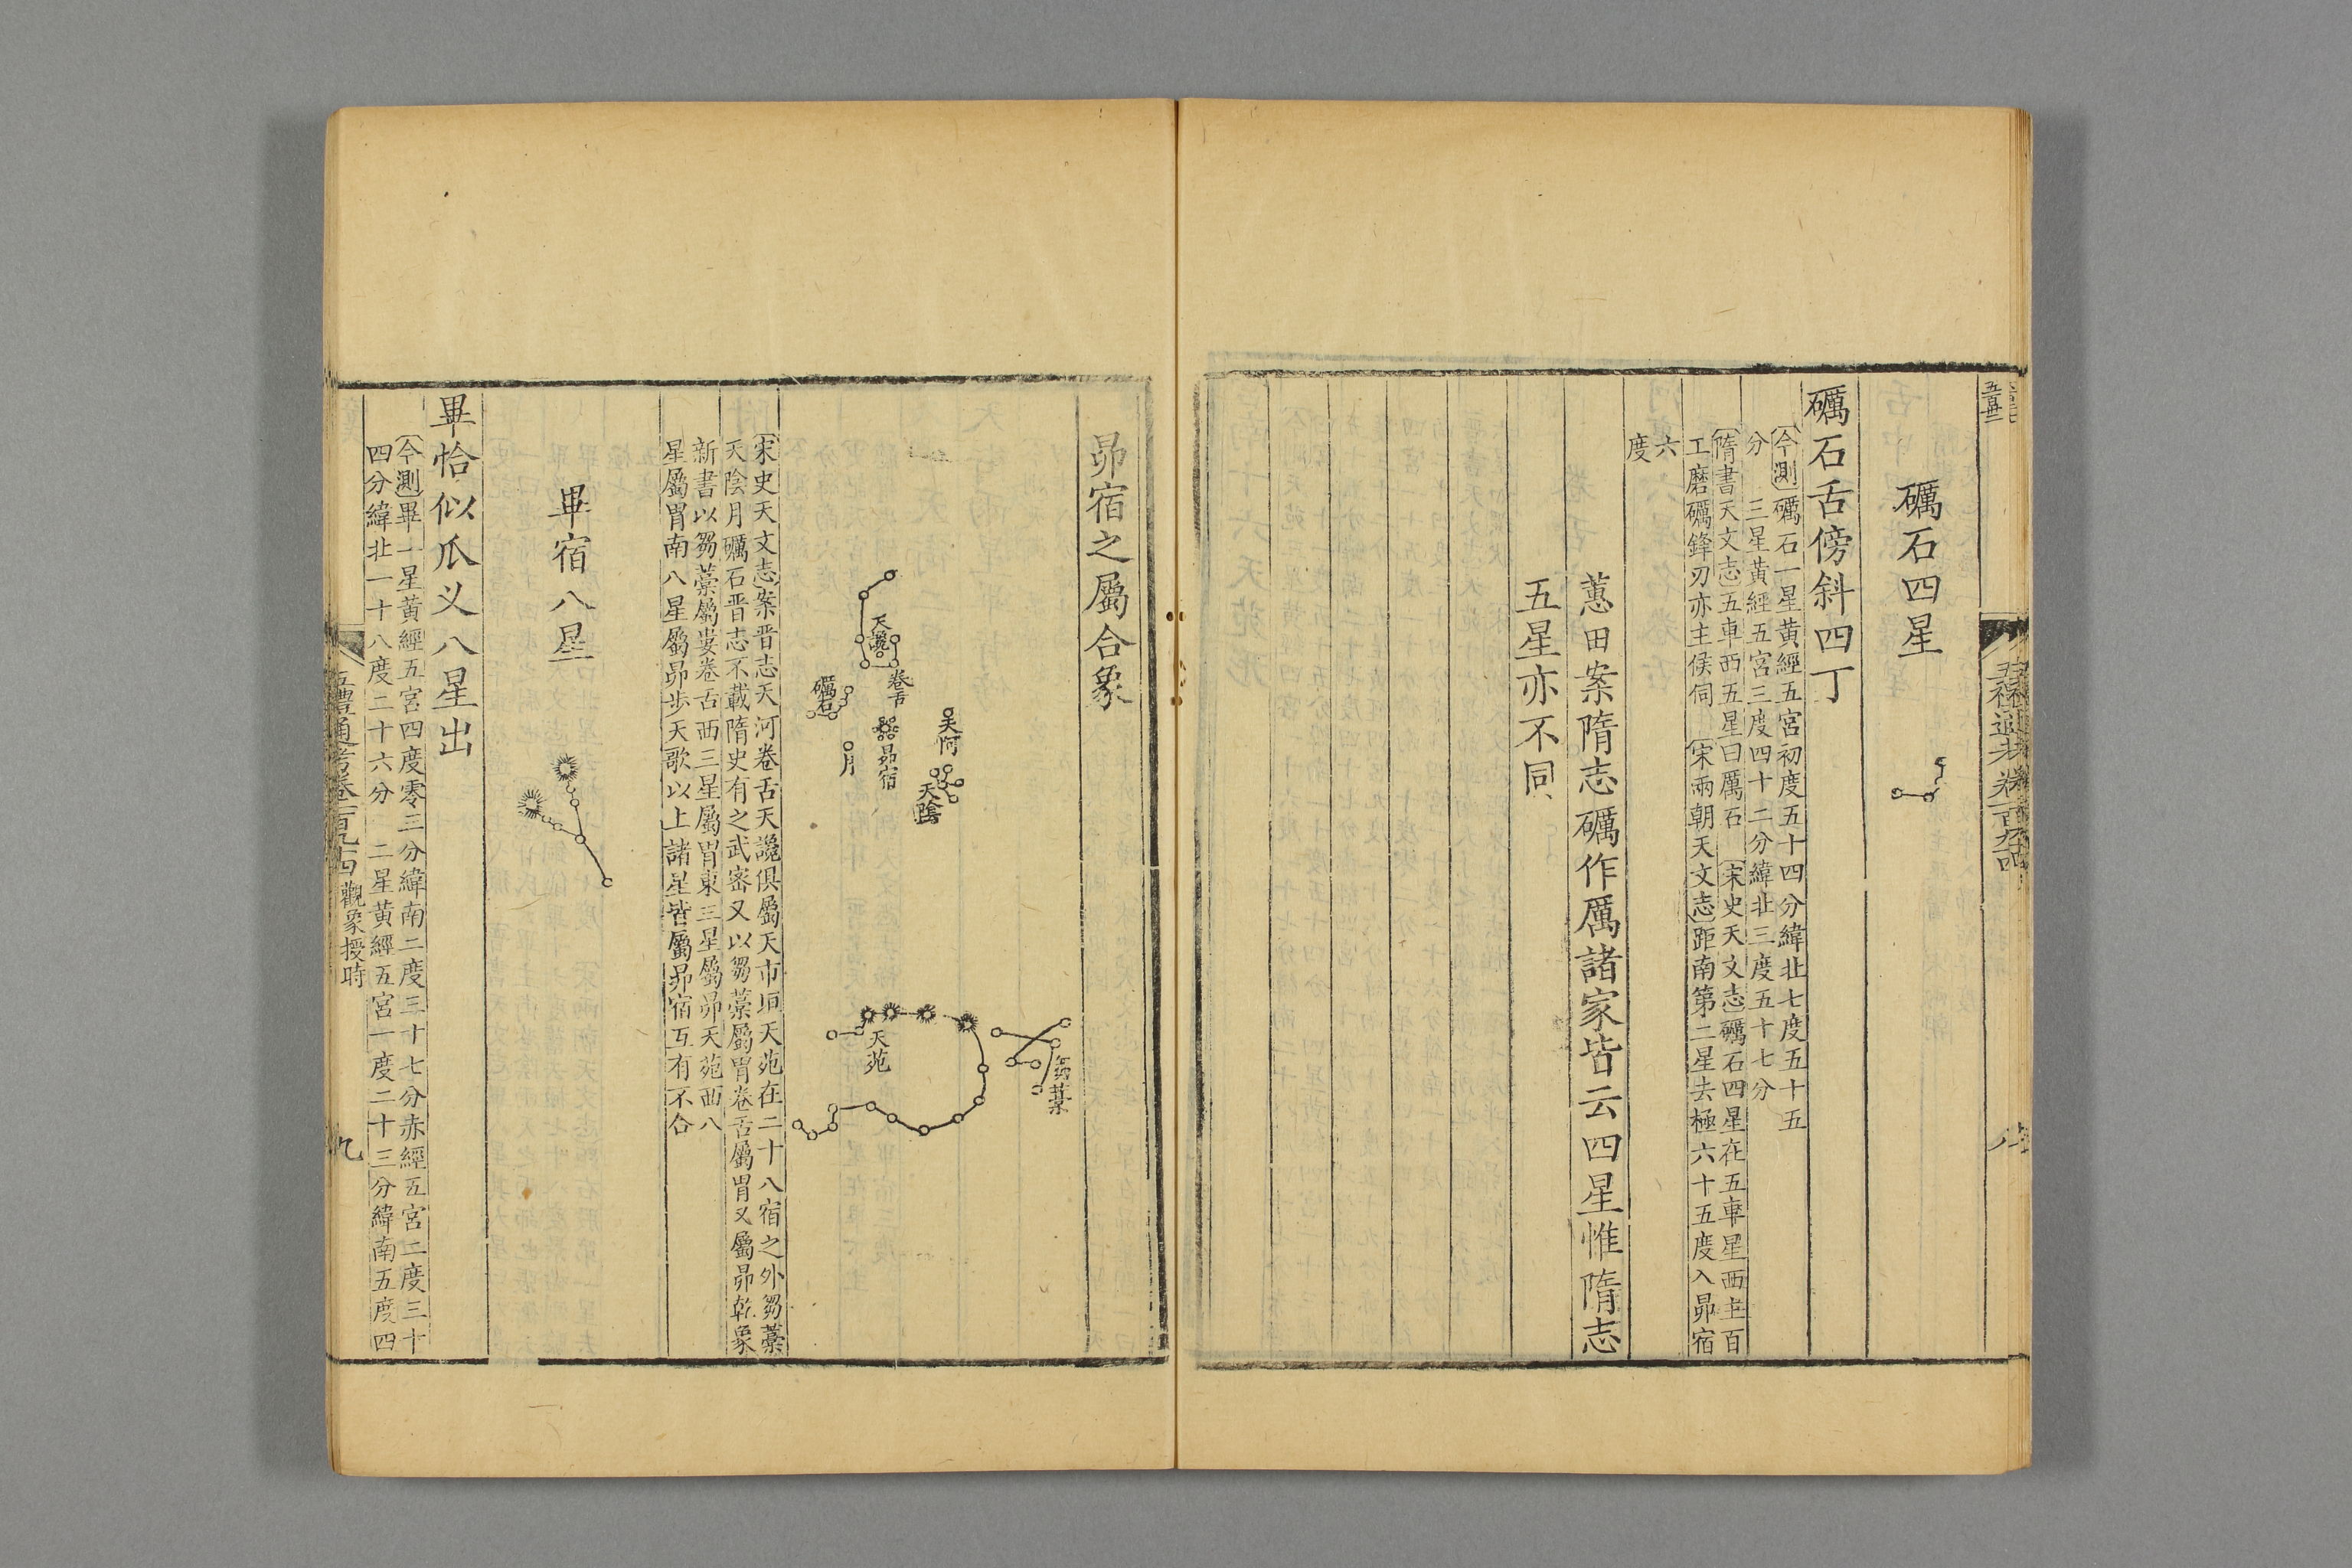 五禮通考卷一百九十四
八
礪石四星
礪石舌傍斜四丁
今測礪石一星黃經五宮初度五十四分緯北七度五十五
分　三星黃經五宮三度四十二分緯北三度五十七分
隋書天文志五車西五星曰厲石　宋史天文志礪石四星在五車星西主百
工磨礪鋒刃亦主候伺　宋兩朝天文志距南第二星去極六十五度入昴宿
六
度
蕙田案隋志礪作厲諸家皆云四星惟隋志
五星亦不同
昴宿之屬合象
芻藁
天河
天陰
卷舌
昴宿
天讒
天苑
月
礪石
宋史天文志案晋志天河卷舌天讒俱屬天市垣天苑在二十八宿之外芻藁
天陰月礪石晋志不載隋史有之武密又以芻藁屬胃卷舌屬胃又屬昴乾象
新書以芻藁屬婁卷舌西三星屬胃東三星屬昴天苑西八
星屬胃南八星屬昴步天歌以上諸星皆屬昴宿互有不合
畢宿八星
畢恰似爪义八星出
今測畢一星黃經五宮四度零三分緯南二度三十七分赤經五宮二度三十
四分緯北一十八度二十六分　二星黃經五宮一度二十三分緯南五度四
五禮通考卷一百九十四　觀象授時
九